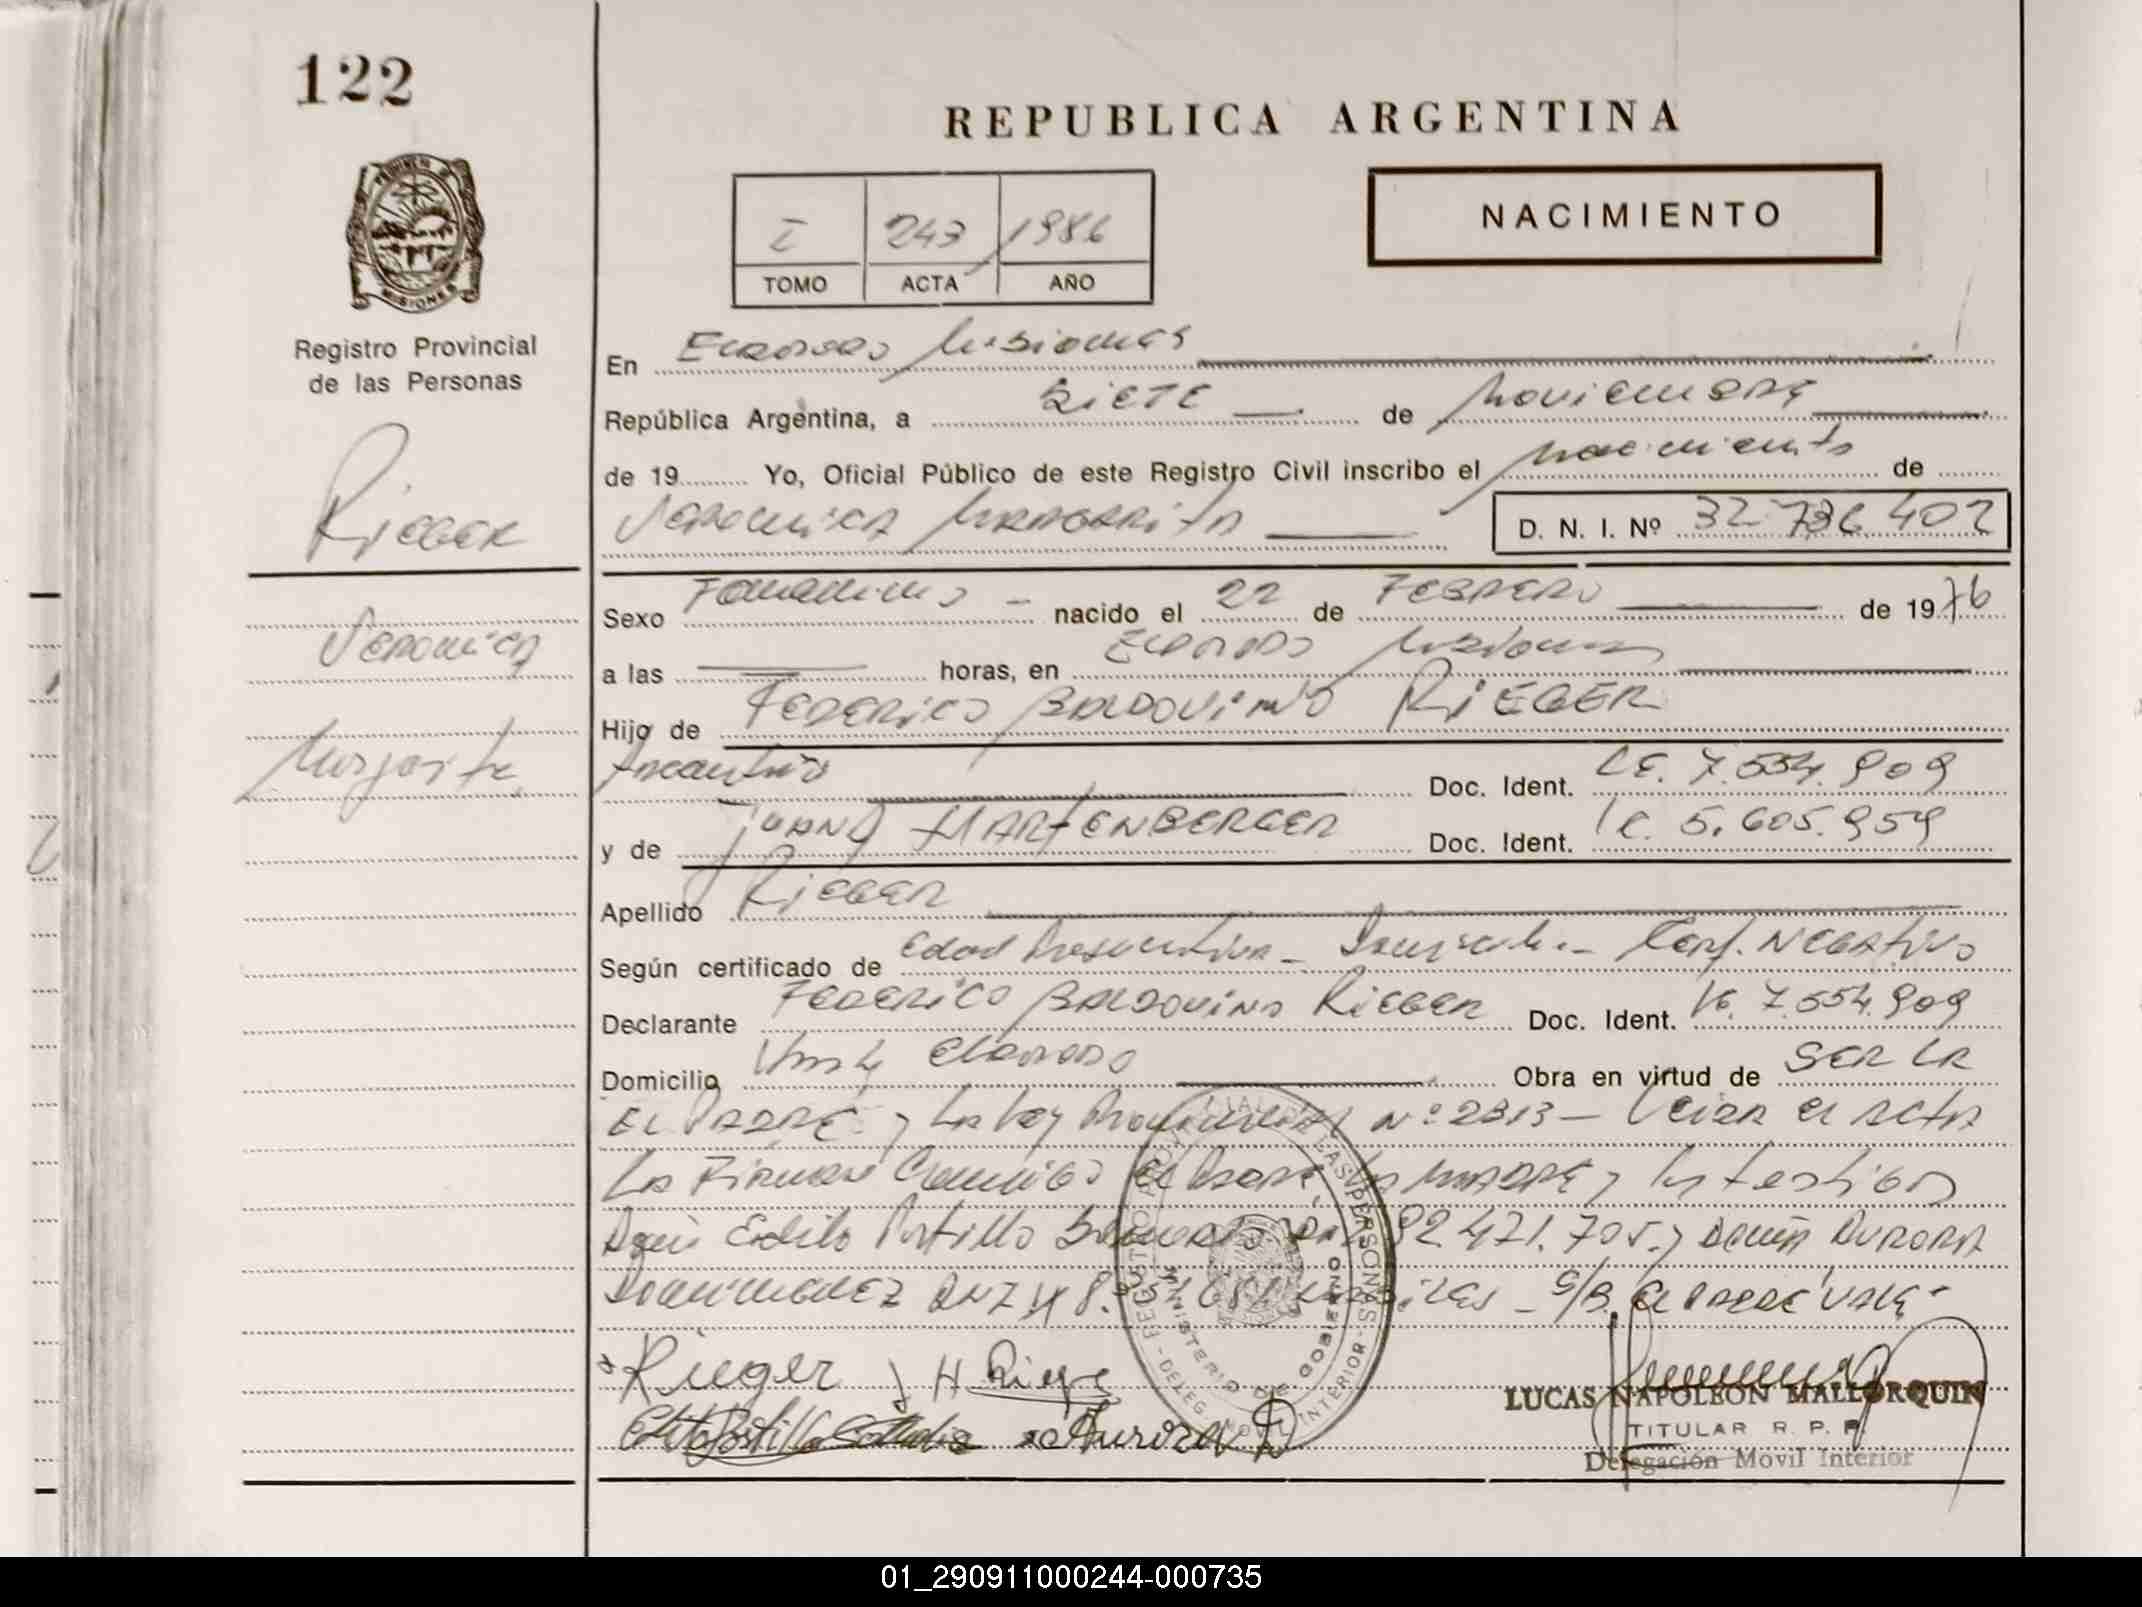 122
REPUBLICA ARGENTINA
NACIMIENTO
I 243 1986
TOMO ACTA AÑO
PROVINCIA DE
MISIONES
Registro Provincial
de las Personas
En Eldorado Misiones
República Argentina, a Siete de Noviembre
de 19 Yo, Oficial Público de este Registro Civil inscribo el nacimiento de
Rieger
Veronica Margarita D. N. I. Nº 32.736.402
Sexo Femenino - nacido el 22 de Febrero de 1976
Veronica
a las horas, en Eldorado Misiones
Hijo de Federico Baldovino RIEGER
Margarita
Argentino Doc. Ident. LE. 7.554.909
y de Juana HARTENBERGER Doc. Ident. LC. 5.605.959
Apellido Rieger
Según certificado de Edad Presuntiva - - Cert. Negativo
Declarante Federico Baldovino Rieger Doc. Ident. LE. 7.554.909
Domicilio Eldorado Obra en virtud de ser
El Padre y la Ley Provincial Nº 2313 - Leida el acta
la Firman Conmigo el Padre, la Madre y los testigos
Don Edilo Portillo DNI 92.471.705 y Doña Aurora
Dominguez DNI - S/B. el padre Vale -
Rieger J H Rieger
Aurora D
MINISTERIO DE GOBIERNO
LAS PERSONAS
DELEG. MOVIL INTERIOR
LUCAS NAPOLEON MALLORQUIN
TITULAR R. P. P.
Delegación Movil Interior
01_290911000244-000735